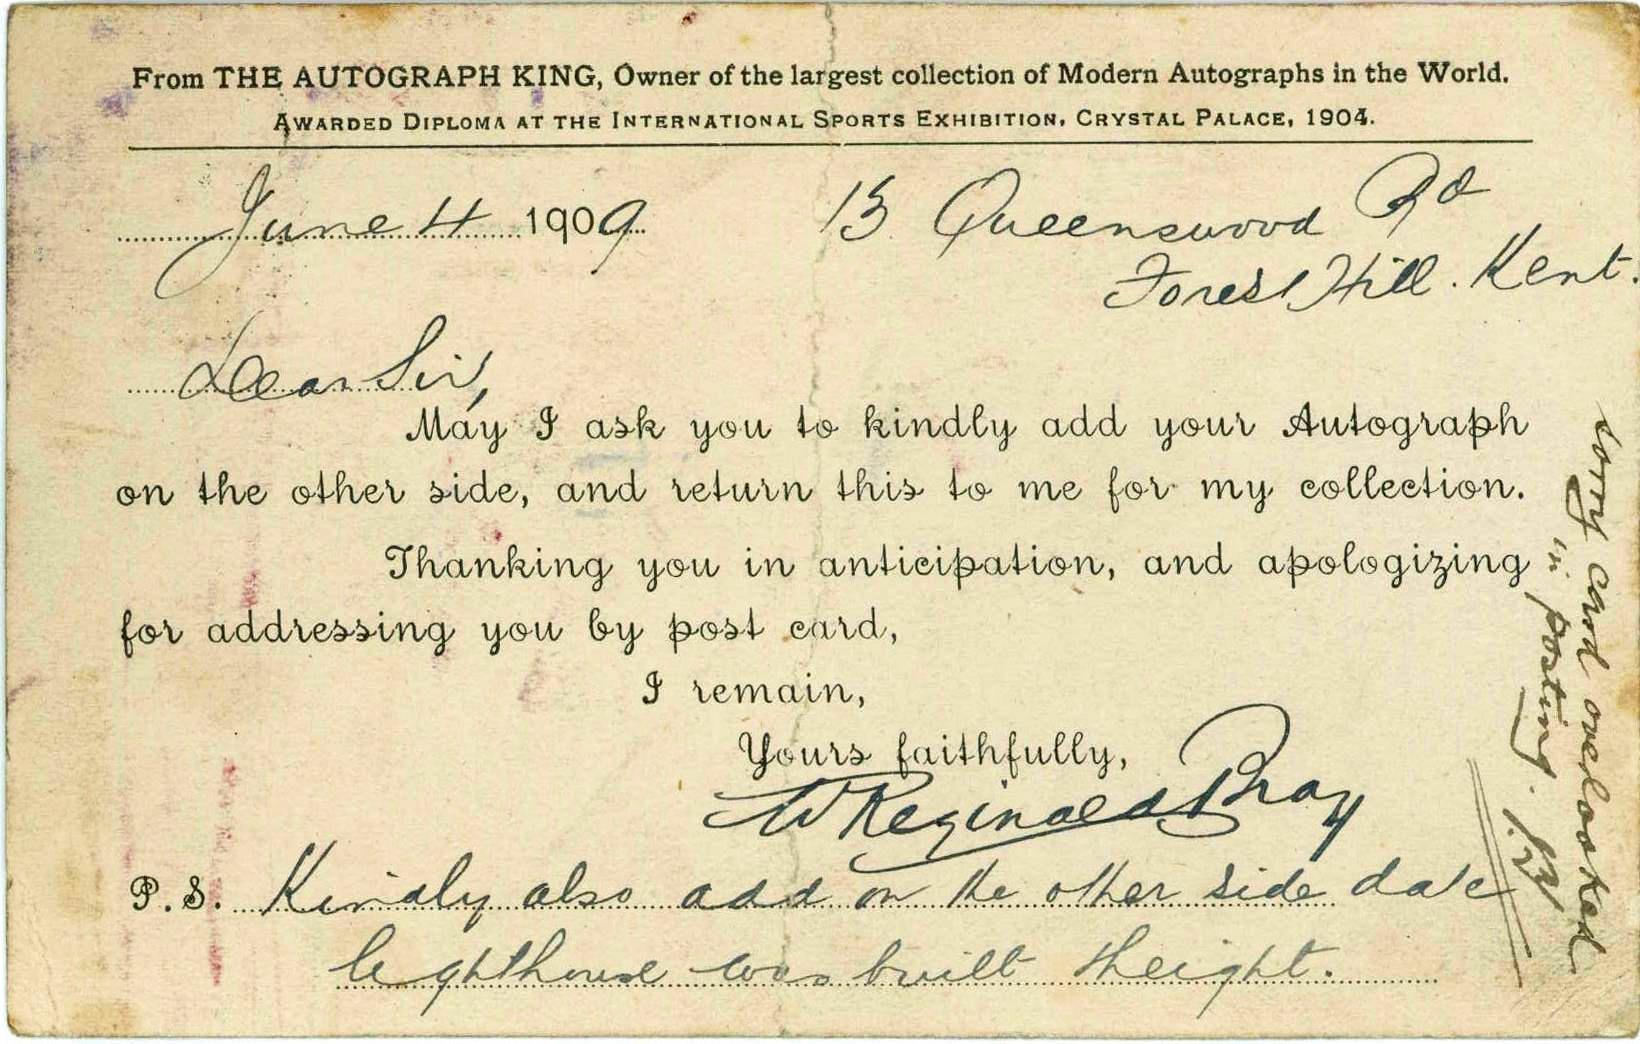 From THE AUTOGRAPH KING, Owner of the largest collection of Modern Autographs in the World.
AWARDED DIPLOMA AT THE INTERNATIONAL SPORTS EXHIBITION, CRYSTAL PALACE, 1904.
June 4 1909
13 Queenswood Rd
Forest Hill. Kent.
Dear Sir,
May I ask you to kindly add your Autograph
on the other side, and return this to me for my collection.
Thanking you in anticipation, and apologizing
for addressing you by post card,
I remain,
Yours faithfully,
W Reginald Bray
P.S. Kindly also add on the other side date
lighthouse was built & height.
Sorry card overlooked
in posting.